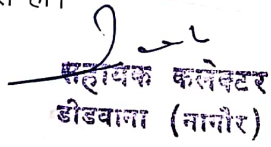 सहायक कलेक्टर
डीडवाना (नागौर)